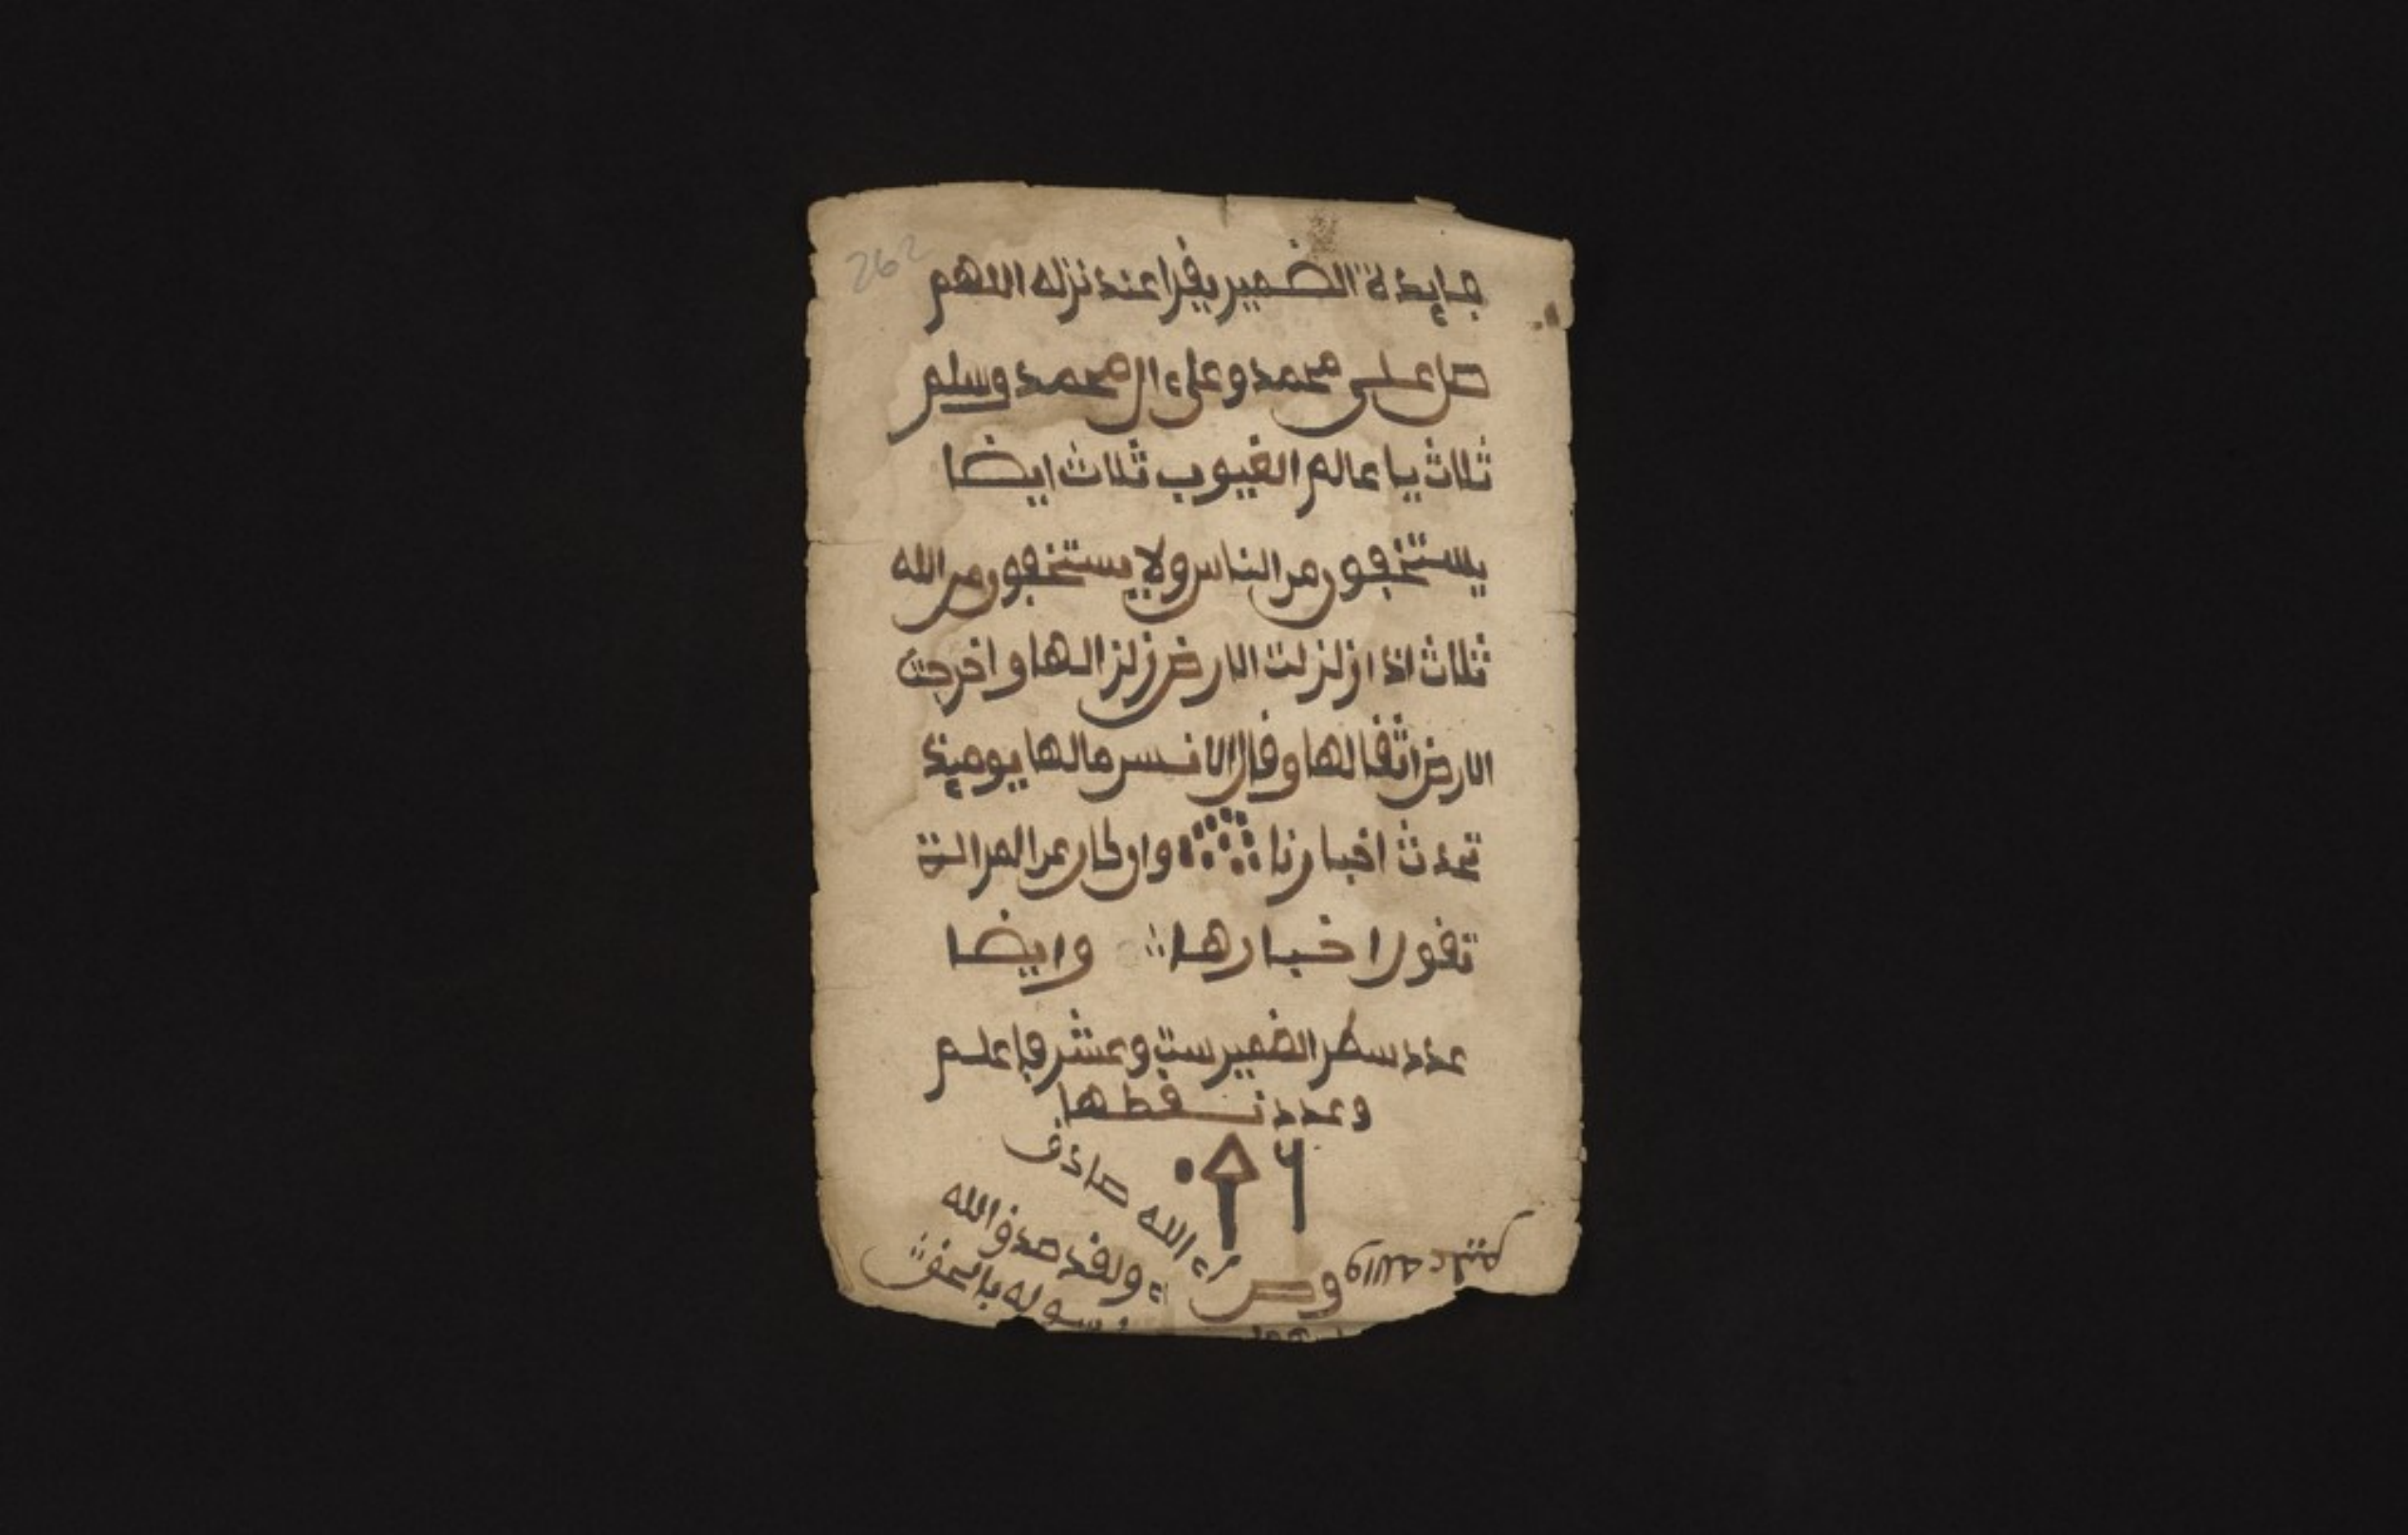 262
فايدة الضمير يقرا عند نزله اللهم
صل على محمد وعلى ال محمد وسلم
ثلاث يا عالم الغيوب ثلاث ايضا
يستخفون من الناس ولا يستخفون من الله
ثلاث اذا زلزلت الارض زلزالها واخرجت
الارض اثقالها وقال الانسن مالها يوميذ
تحدث اخبارنا وان كان عن المرالة
تقول اخبارها وايضا
عدد سطر الضمير ست وعشر فاعلم
وعدد نقطها
الله صادق
ولقد صدق الله
رسوله بالحق
والله عليم